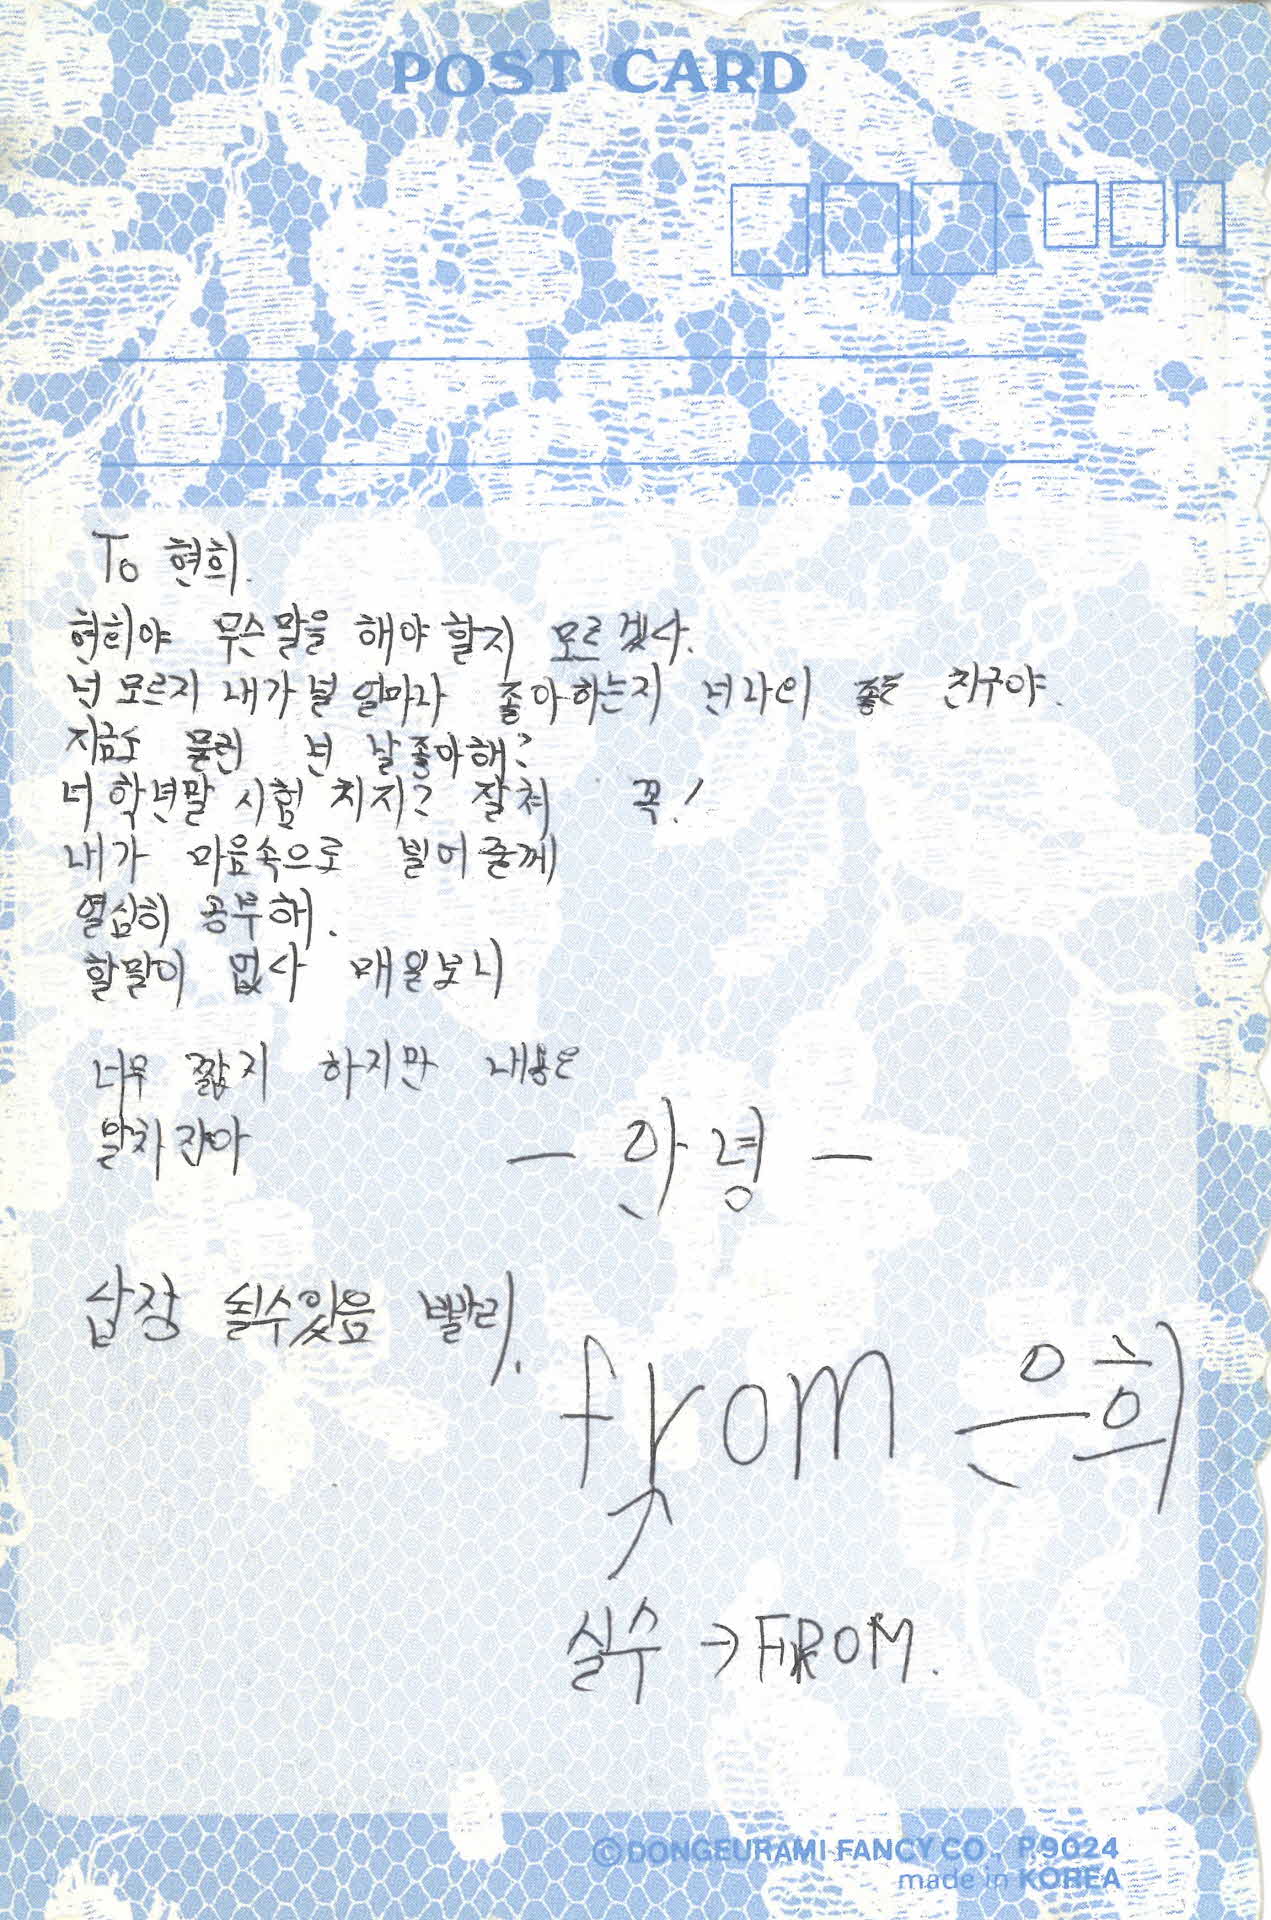 POST CARD
To 현희.
현희야 무슨말을 해야 할지 모르겠다.
넌 모르지 내가 널 얼마나 좋아하는지 넌나의 좋은 친구야.
지금도 물런 넌 날좋아해?
너 학년말 시험 치지? 잘쳐 꼭!
내가 마음속으로 빌어줄께
열심히 공부해.
할말이 없다 매일보니
너무 짧지 하지만 내용은
알차잖아
— 안녕 —
답장 쓸수있음 빨리.
from 은희
실수 → FROM.
©DONGEURAMI FANCY CO. P.9024
made in KOREA